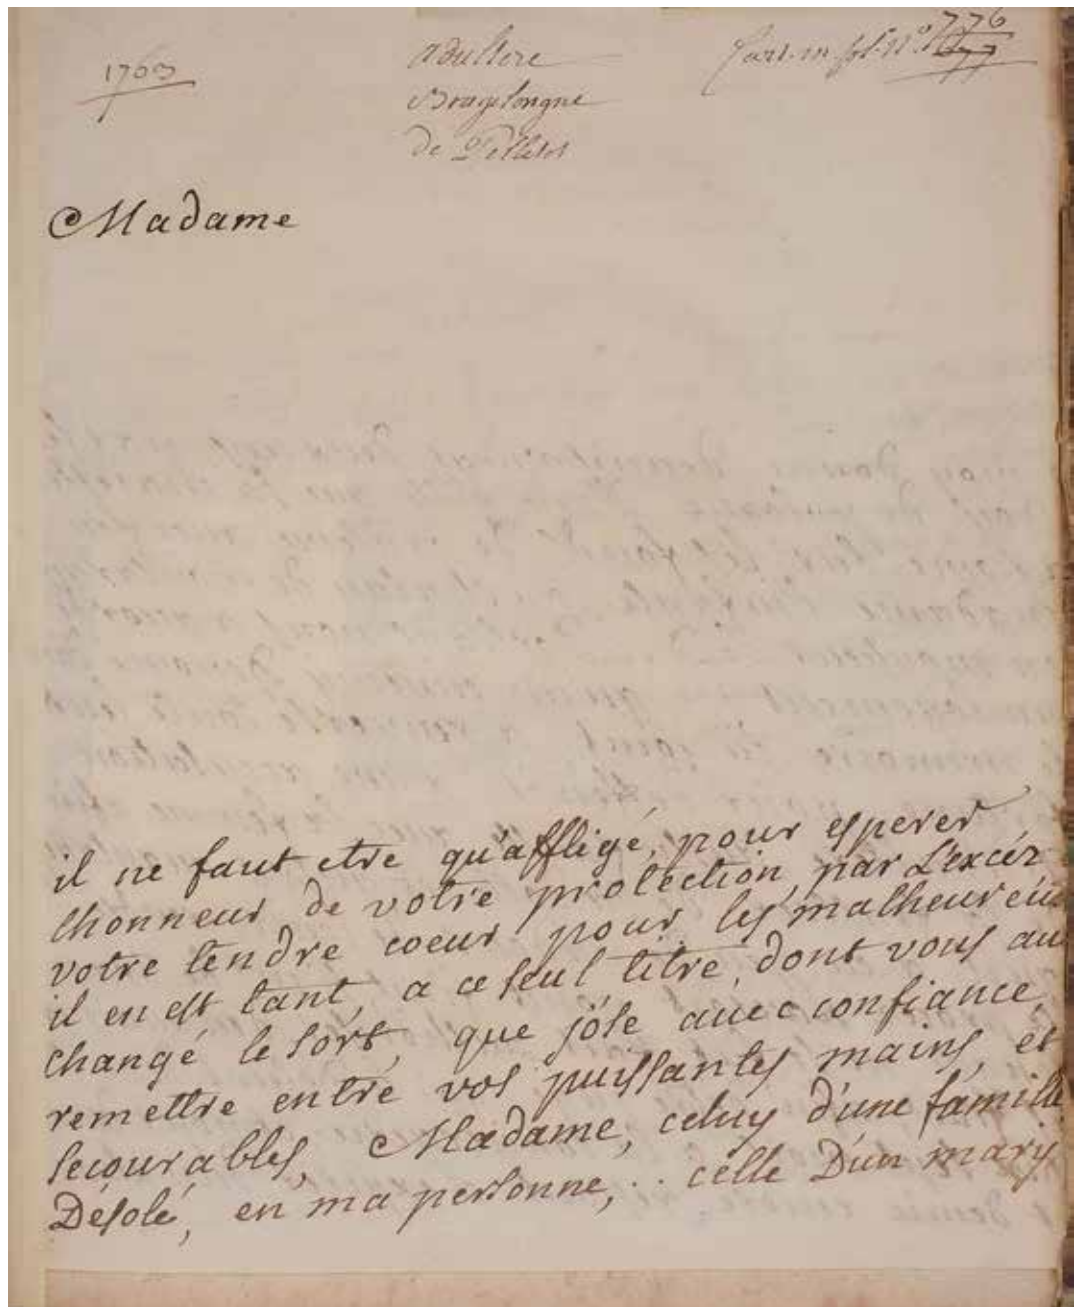 1763
Adultere
Bragelongne
de Pelletot
Cart. in fol. n.º
776
77
Madame
il ne faut etre qu'affligé, pour esperer
lhonneur de votre protection, par L'excéz
votre tendre coeur pour les malheureux
il en est tant, a ce seul titre, dont vous au
changé le sort, que j'ôse avec confiance,
remettre entre vos puissantes mains, et
secourables, Madame, celuy d'une famille
Désolé, en ma personne, .. celle D'un mary